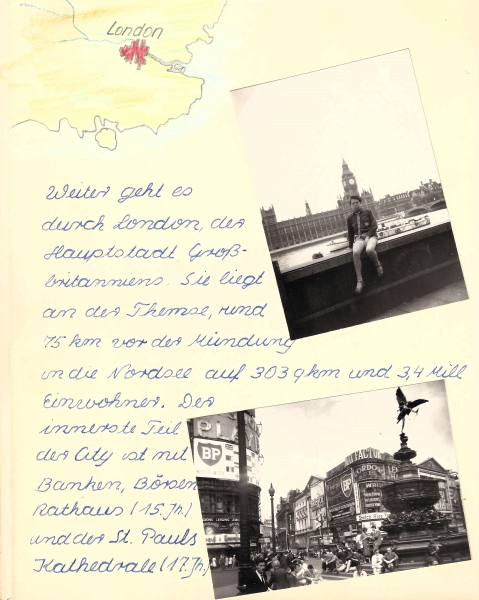 London
Weiter geht es
durch London, der
Hauptstadt Groß-
britanniens. Sie liegt
an der Themse, rund
75 km vor der Mündung
in die Nordsee auf 303 qkm und 3,4 Mill
Einwohner. Der
innerste Teil
der City ist mit
Banken, Börsen
Rathaus (15. Jh.)
und der St. Pauls
Kathedrale (17. Jh.)
PLA
BP
BP